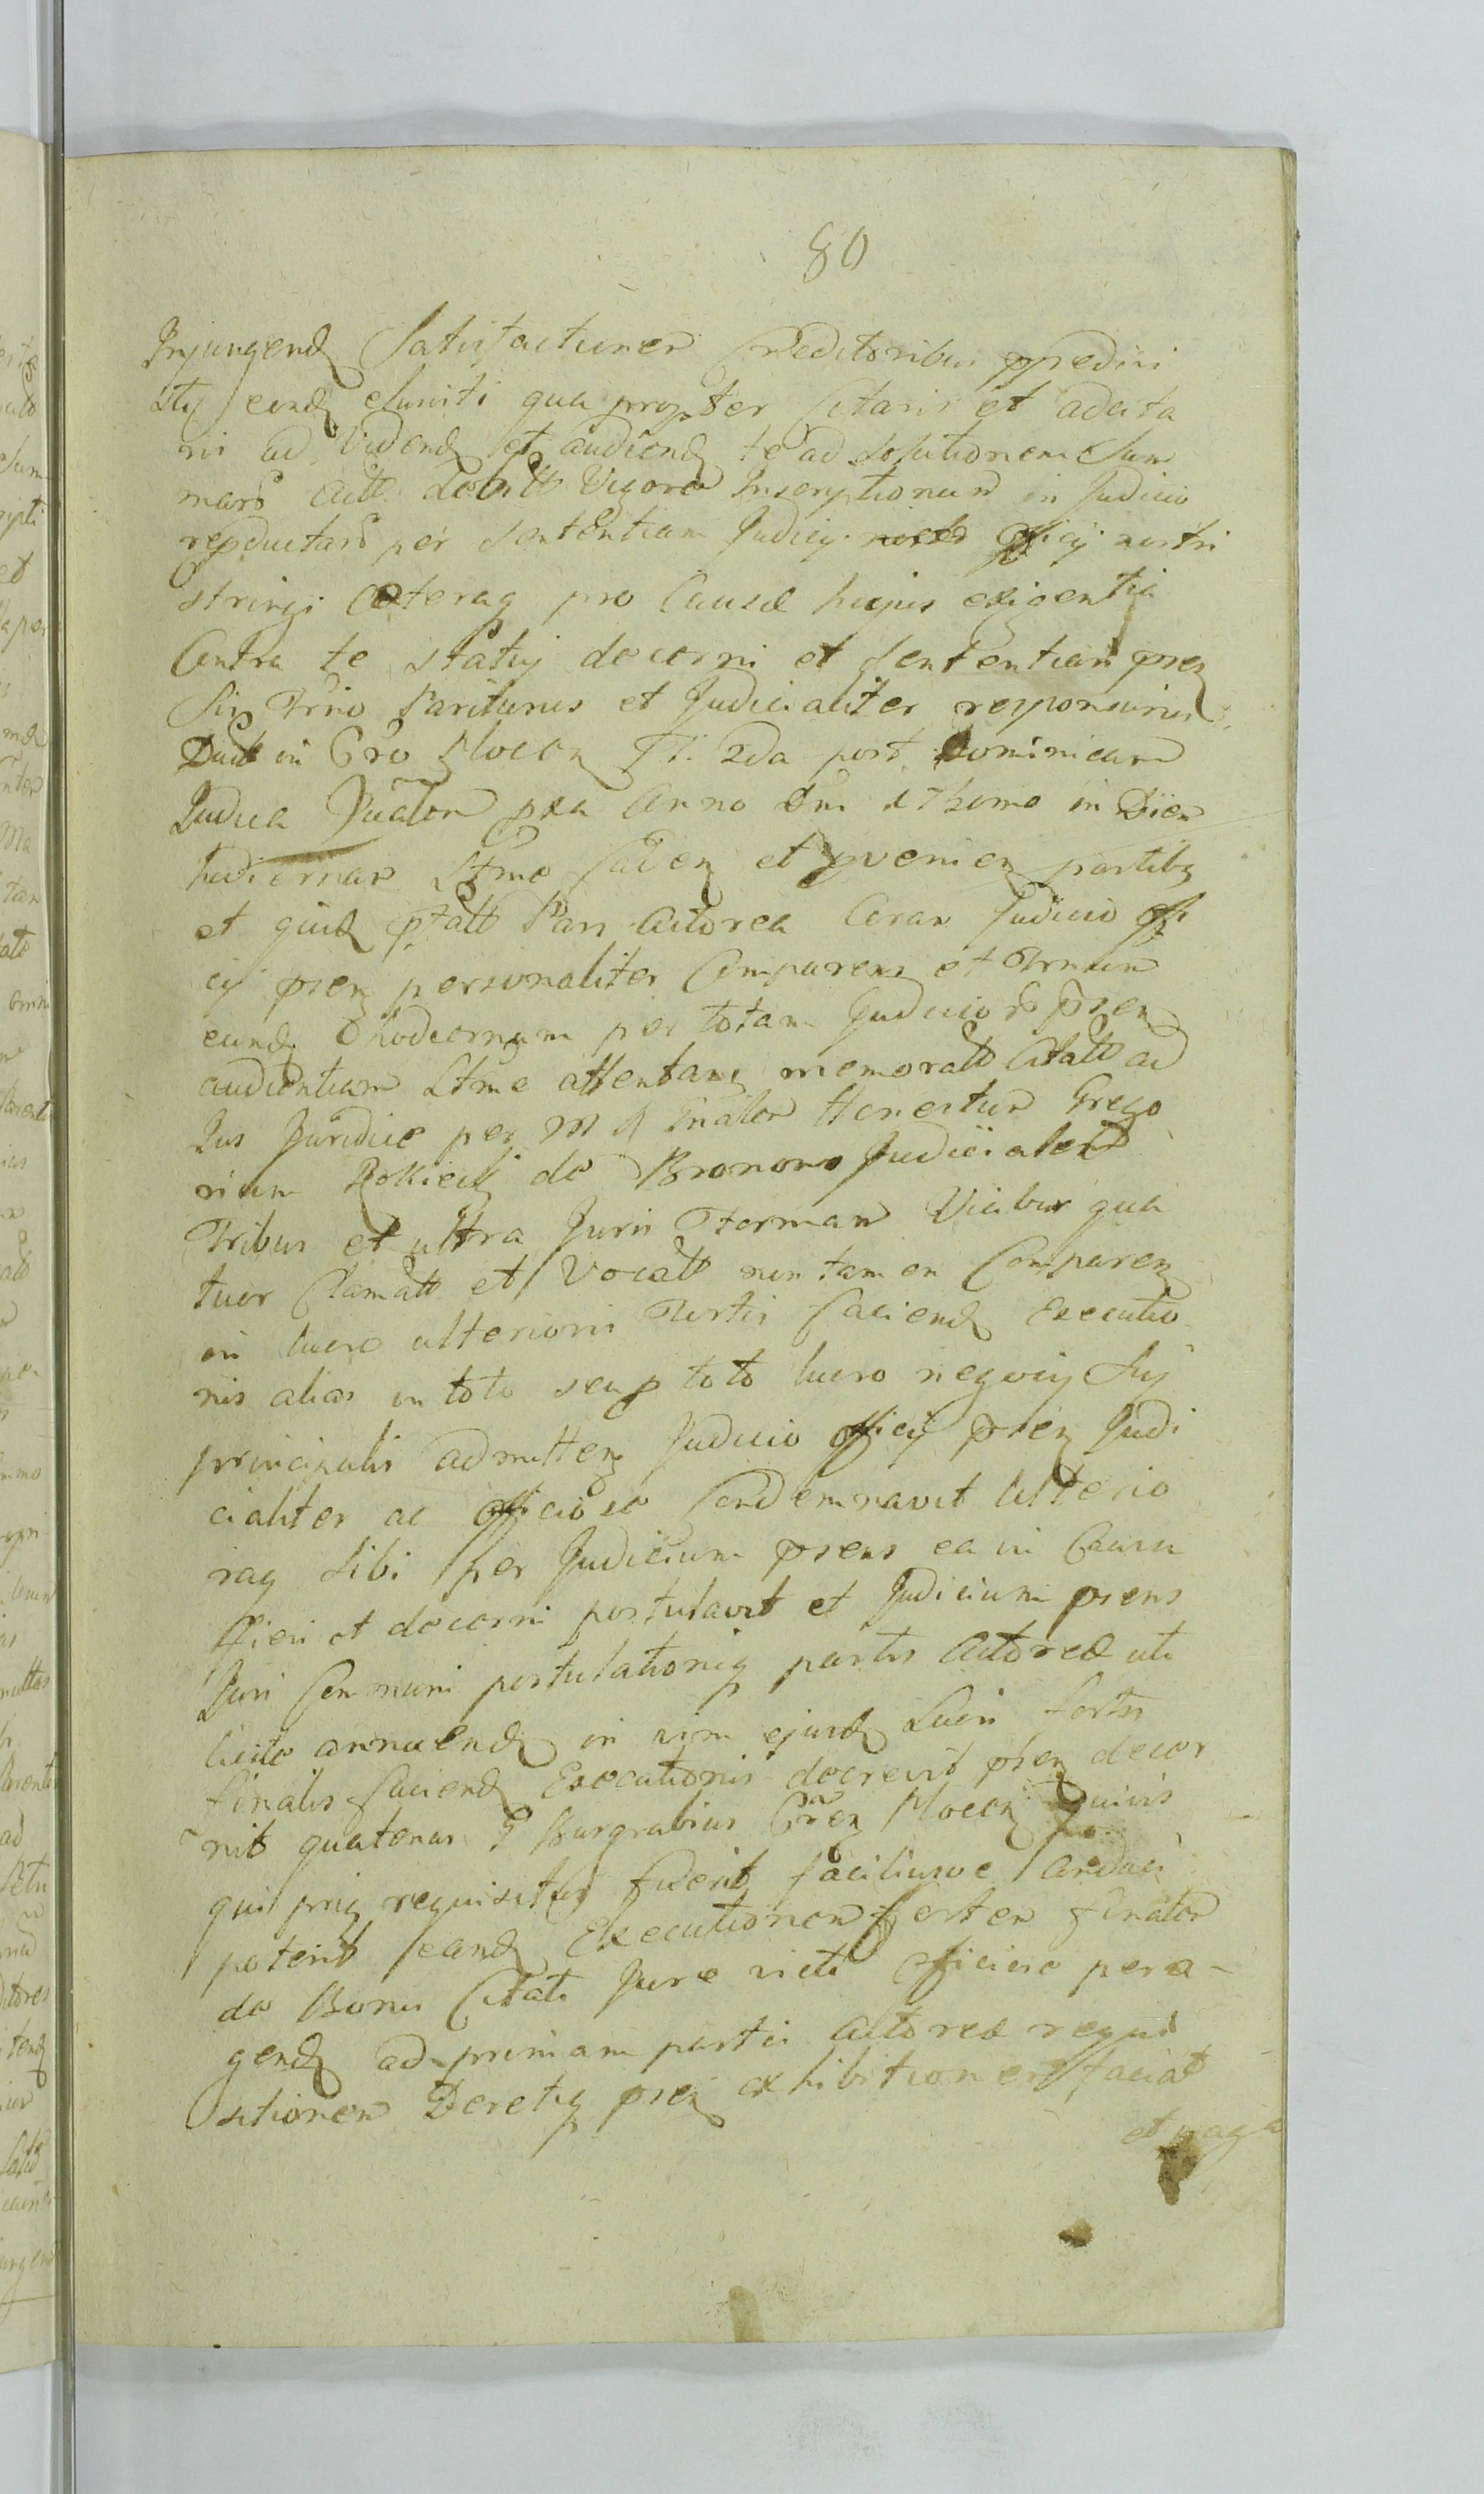 80
Injungend Satisfactionem Creditoribus
eund qua propter Citaris et adcita
ris ad Videnđ et audiend te ad Solutionem Sum
mars Vigore Inscriptionum in Judicio
reproductars per Sententiam Judicij officij nostri
stringi Caeteraq pro Causae hujus exigentia
Contra te statuj decerni et Sententiari
Sis Trno Pariturus et Judicialiter responsurus
in Cro Plocen F. 2da post Dominicam
Judica Anno Dni in Diem
hodiernam Ltme caden et pvenien partibq
et quid Pars Actorea Coram Judicio offi
cij psen personaliter Comparens et Trnum
eund hodiernum per totam Judicior psen
audientiam Ltme attentans memoratt Citatt ad
Jus Juridice per M Honestum Grego
rium Rokicki de Bronowo Judicialem
Tribus et ultra Juris Formam Vicibus qua
tuor Clamatt et Vocatt non tamen Comparen
in lucro ulterioris Fortis faciend Executio
nis alias in toto seu p toto lucro negocij Sui
principalis admitten Judicio officij psen Judi
cialiter ac officiose Condemnavit Ulterio
raq Sibi per Judicium psens ea in Causa
fieri et decerni postulavit et Judicium psens
Juri Communi postulationiq partis Actoreae uti
licite annuend in vim ejusd Lucri fortis
finalis faciend Executionis decrevit psen decer
nit quatenus G Burgrabius Cren Plocen quivis
qui priq requisitus fuerit faciliusve
poterit eand Executionem fortem finalem
de Bonis Citati Jure victi officiose pera-
gend ad primam partis Actoreae requi
sitionem Decretiq psen exhibitionem faciat
et